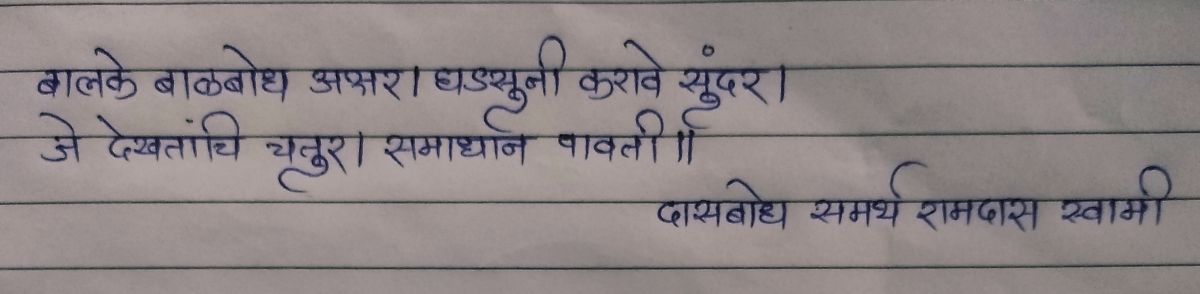 बालके बाळबोध अक्षर। घडसूनी करावे सुंदर।
जे देखतांचि चतुर। समाधान पावती॥
दासबोध समर्थ रामदास स्वामी